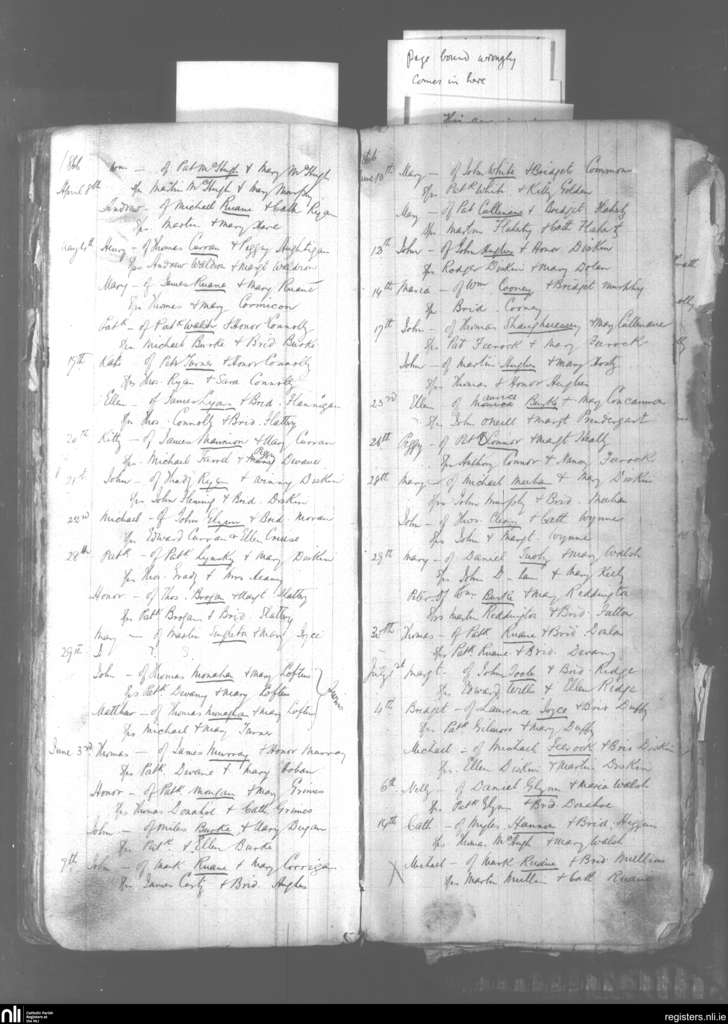 Page bound wrongly
comes in here
1866
Wm — of Pat McHugh & Mary McHugh
April 8th
Sps Martin McHugh & Mary Murphy
Andrew — of Michael Ruane & Cath Ryan
Sps Martin & Mary
4th Henry — of Thomas Curran & Peggy
Sps Andrew Waldron & Margt Waldron
Mary — of James Ruane & Mary Ruane
Sps Thomas & Mary Cormican
Patk — of Patk Walsh & Honor Connolly
Sps Michael Burke & Brid Burke
19th Kate — of Peter Turner & Honor Connolly
Sps Thos. Ryan & Sara Connolly
Ellen — of James Lyons & Brid Flannigan
Sps Thos. Connolly & Brid Slattery
20th Kitty — of James Mannion & Mary Curran
Sps Michael & Peggy Devaney
21st John — of Thady Ryan & Winny Diskin
Sps John Fleming & Brid Diskin
22nd Michael — of John Glynn & Brid Moran
Sps Edward Curran & Ellen
28th Patk — of Patk Lynskey & Mary Diskin
Sps Thos. Grady &
Honor — of Thos. Brogan & Margt Slattery
Sps Patk Brogan & Brid Slattery
Mary — of Martin Singleton & Mary Joyce
29th
John — of Thomas Monahan & Mary Loftus
Sps Patk Devany & Mary Loftus
Twins
Matthew — of Thomas Monaghan & Mary Loftus
Sps Michael & Mary Turner
June 3rd Thomas — of James Murray & Honor Murray
Sps Patk Devane & Mary Coban
Honor — of Patk Morgan & Mary Grimes
Sps Thomas Donahoe & Cath Grimes
John — of Miles Burke & Mary Dugan
Sps Patk & Ellen Burke
9th John — of Mark Ruane & Mary Corrigan
Sps James & Brid Hughes
1866
June 10th Mary — of John White & Bridget Common
Sps Patk White & Kitty Golden
Mary — of Pat Cullinane & Bridget Flaherty
Sps Martin Flaherty & Cath Flaherty
13th John — of John Hughes & Honor Diskin
Sps Rodger Diskin & Mary Dolan
14th Maria — of Wm Cooney & Bridget Murphy
Sps Brid Cooney
17th John — of Thomas Shaughnessy & May Cullinane
Sps Pat Feerock & Mary Feerock
John — of Martin Hughes & Mary
Sps Thomas & Honor Hughes
23rd Ellen — of Maurice Burke & May Concannon
Sps John Oneill & Margt Prendergast
26th Peggy — of Pat OConnor & Margt Healy
Sps Anthony Connor & Nancy Feerock
28th Mary — of Michael Meehan & Mary Diskin
Sps John Murphy & Brid Meehan
John — of Thos. Cleary & Cath Wynne
Sps John & Margt Wynne
29th Mary — of Daniel & Mary Walsh
Sps John & Mary Kelly
Peter of Wm Burke & Mary Reddington
Sps Martin Reddington & Brid Fallon
30th Thomas — of Patk Ruane & Brid Donlan
Sps Patk Ruane & Brid Devany
July 1st Margt — of John Toole & Brid Ridge
Sps Edward & Ellen Ridge
4th Bridget — of Laurence Joyce & Brid Duffy
Sps Patk Gilmore & Mary Duffy
Michael — of Michael Feerock & Brid Diskin
Sps Ellen Diskin & Martin Diskin
6th Nelly — of Daniel Glynn & Maria Walsh
Sps Patk Glynn & Brid Donahoe
14th Cath — of Myles Hannon & Brid Higgins
Sps Thomas McHugh & Mary Walsh
Michael — of Mark Ruane & Brid Mullin
Sps Martin Mullin & Cath Ruane
nli
Catholic Parish
Registers at
the NLI
registers.nli.ie